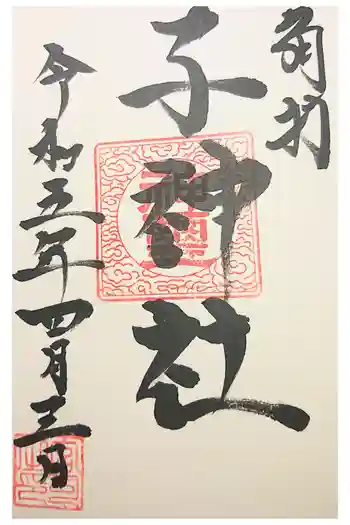 子神社
令和五年四月三日